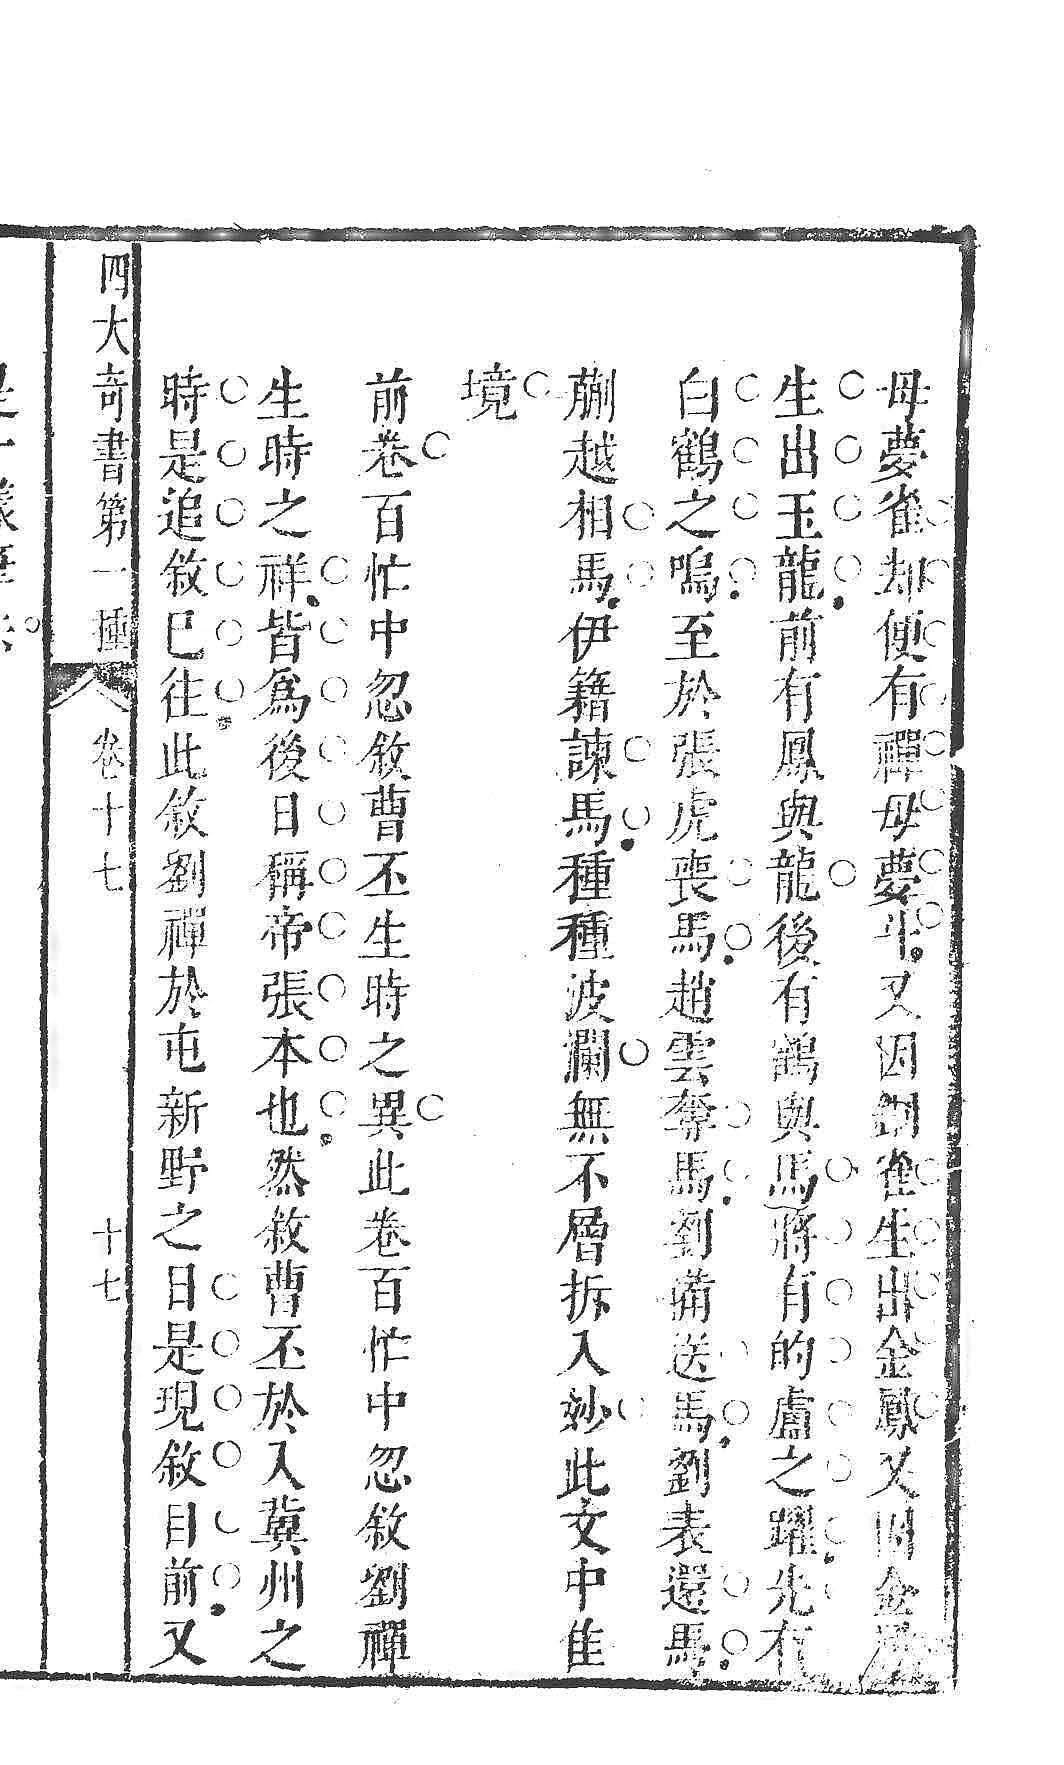 母夢雀却便有禪母夢斗又因銅雀生出金鳳又因金鳳
生出玉龍前有鳳與龍後有鶴與馬將有的盧之躍先有
白鶴之鳴至於張虎喪馬趙雲奪馬劉備送馬劉表還馬
蒯越相馬伊籍諫馬種種波瀾無不層折入妙此文中佳
境
前卷百忙中忽敘曹丕生時之異此卷百忙中忽敘劉禪
生時之祥皆爲後日稱帝張本也然敘曹丕於入冀州之
時是追敘已往此敘劉禪於屯新野之日是現敘目前又
四大奇書第一種 卷十七 十七